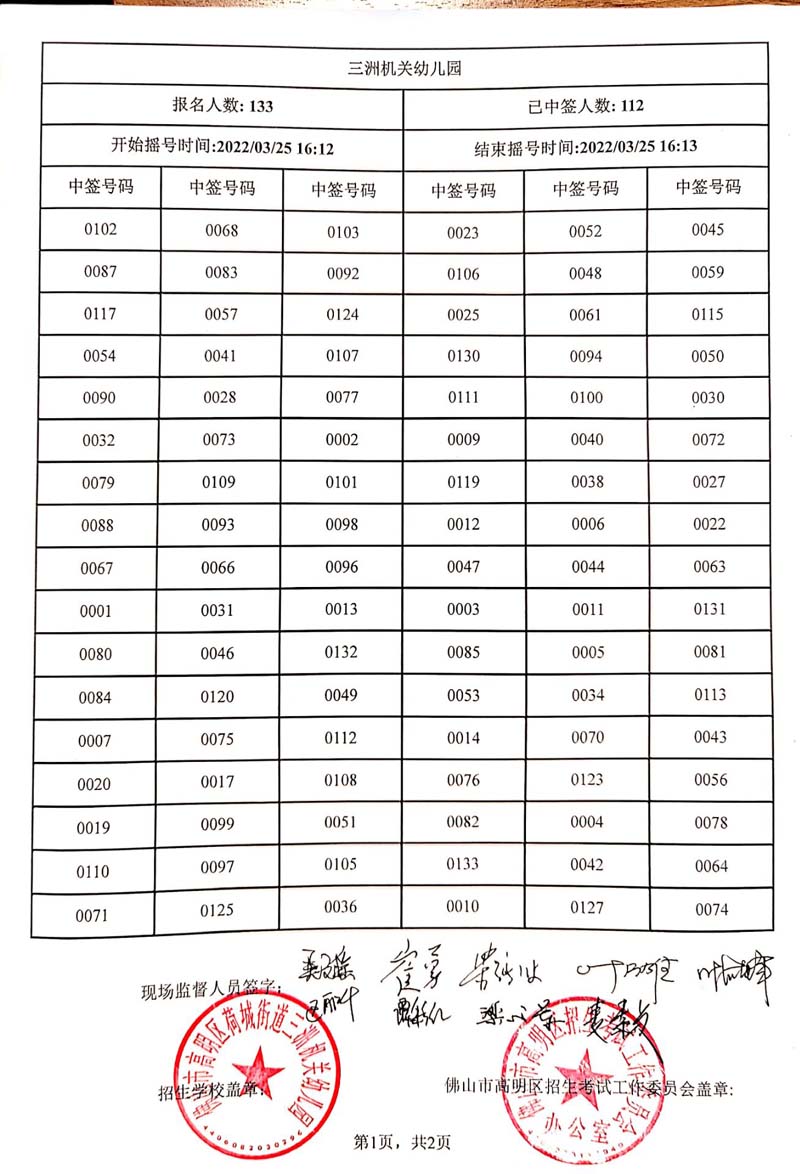 三洲机关幼儿园
报名人数: 133 已中签人数: 112
开始摇号时间:2022/03/25 16:12 结束摇号时间:2022/03/25 16:13
中签号码 中签号码 中签号码 中签号码 中签号码 中签号码
0102 0068 0103 0023 0052 0045
0087 0083 0092 0106 0048 0059
0117 0057 0124 0025 0061 0115
0054 0041 0107 0130 0094 0050
0090 0028 0077 0111 0100 0030
0032 0073 0002 0009 0040 0072
0079 0109 0101 0119 0038 0027
0088 0093 0098 0012 0006 0022
0067 0066 0096 0047 0044 0063
0001 0031 0013 0003 0011 0131
0080 0046 0132 0085 0005 0081
0084 0120 0049 0053 0034 0113
0007 0075 0112 0014 0070 0043
0020 0017 0108 0076 0123 0056
0019 0099 0051 0082 0004 0078
0110 0097 0105 0133 0042 0064
0071 0125 0036 0010 0127 0074
现场监督人员签字:
佛山市高明区荷城街道三洲机关幼儿园
4406082030296
佛山市高明区招生考试工作委员会
办公室
招生学校盖章: 佛山市高明区招生考试工作委员会盖章:
第1页，共2页